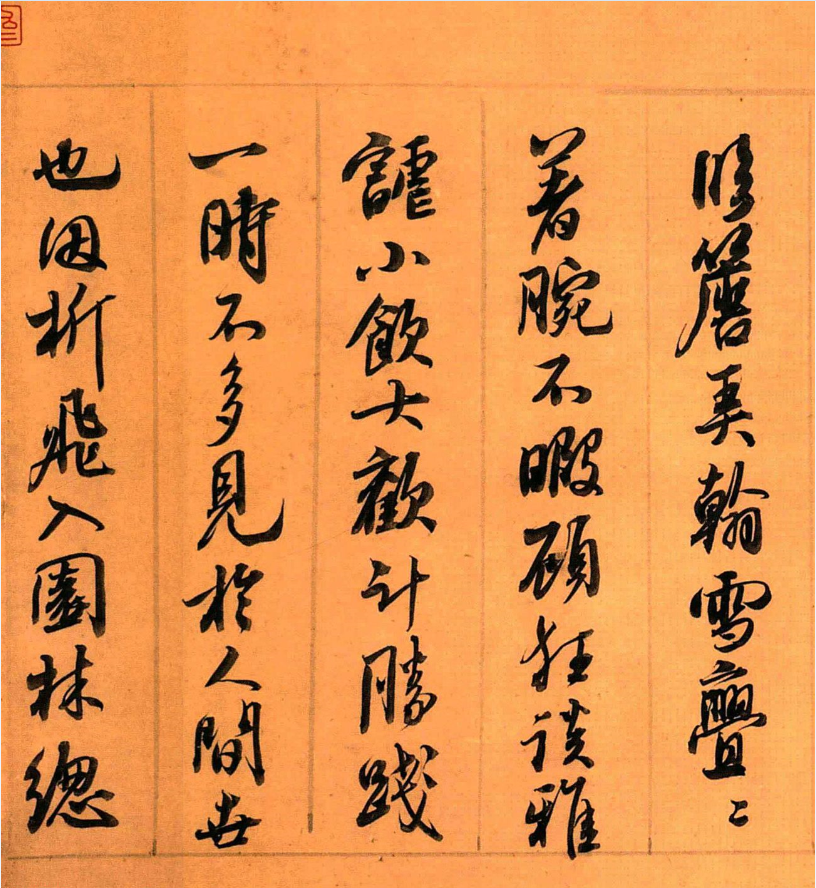 簷弄翰雪亹〻
著腕不暇顧狂談雅
謔小飲大歡計勝踐
一時不多見於人間世
也因析飛入園林總